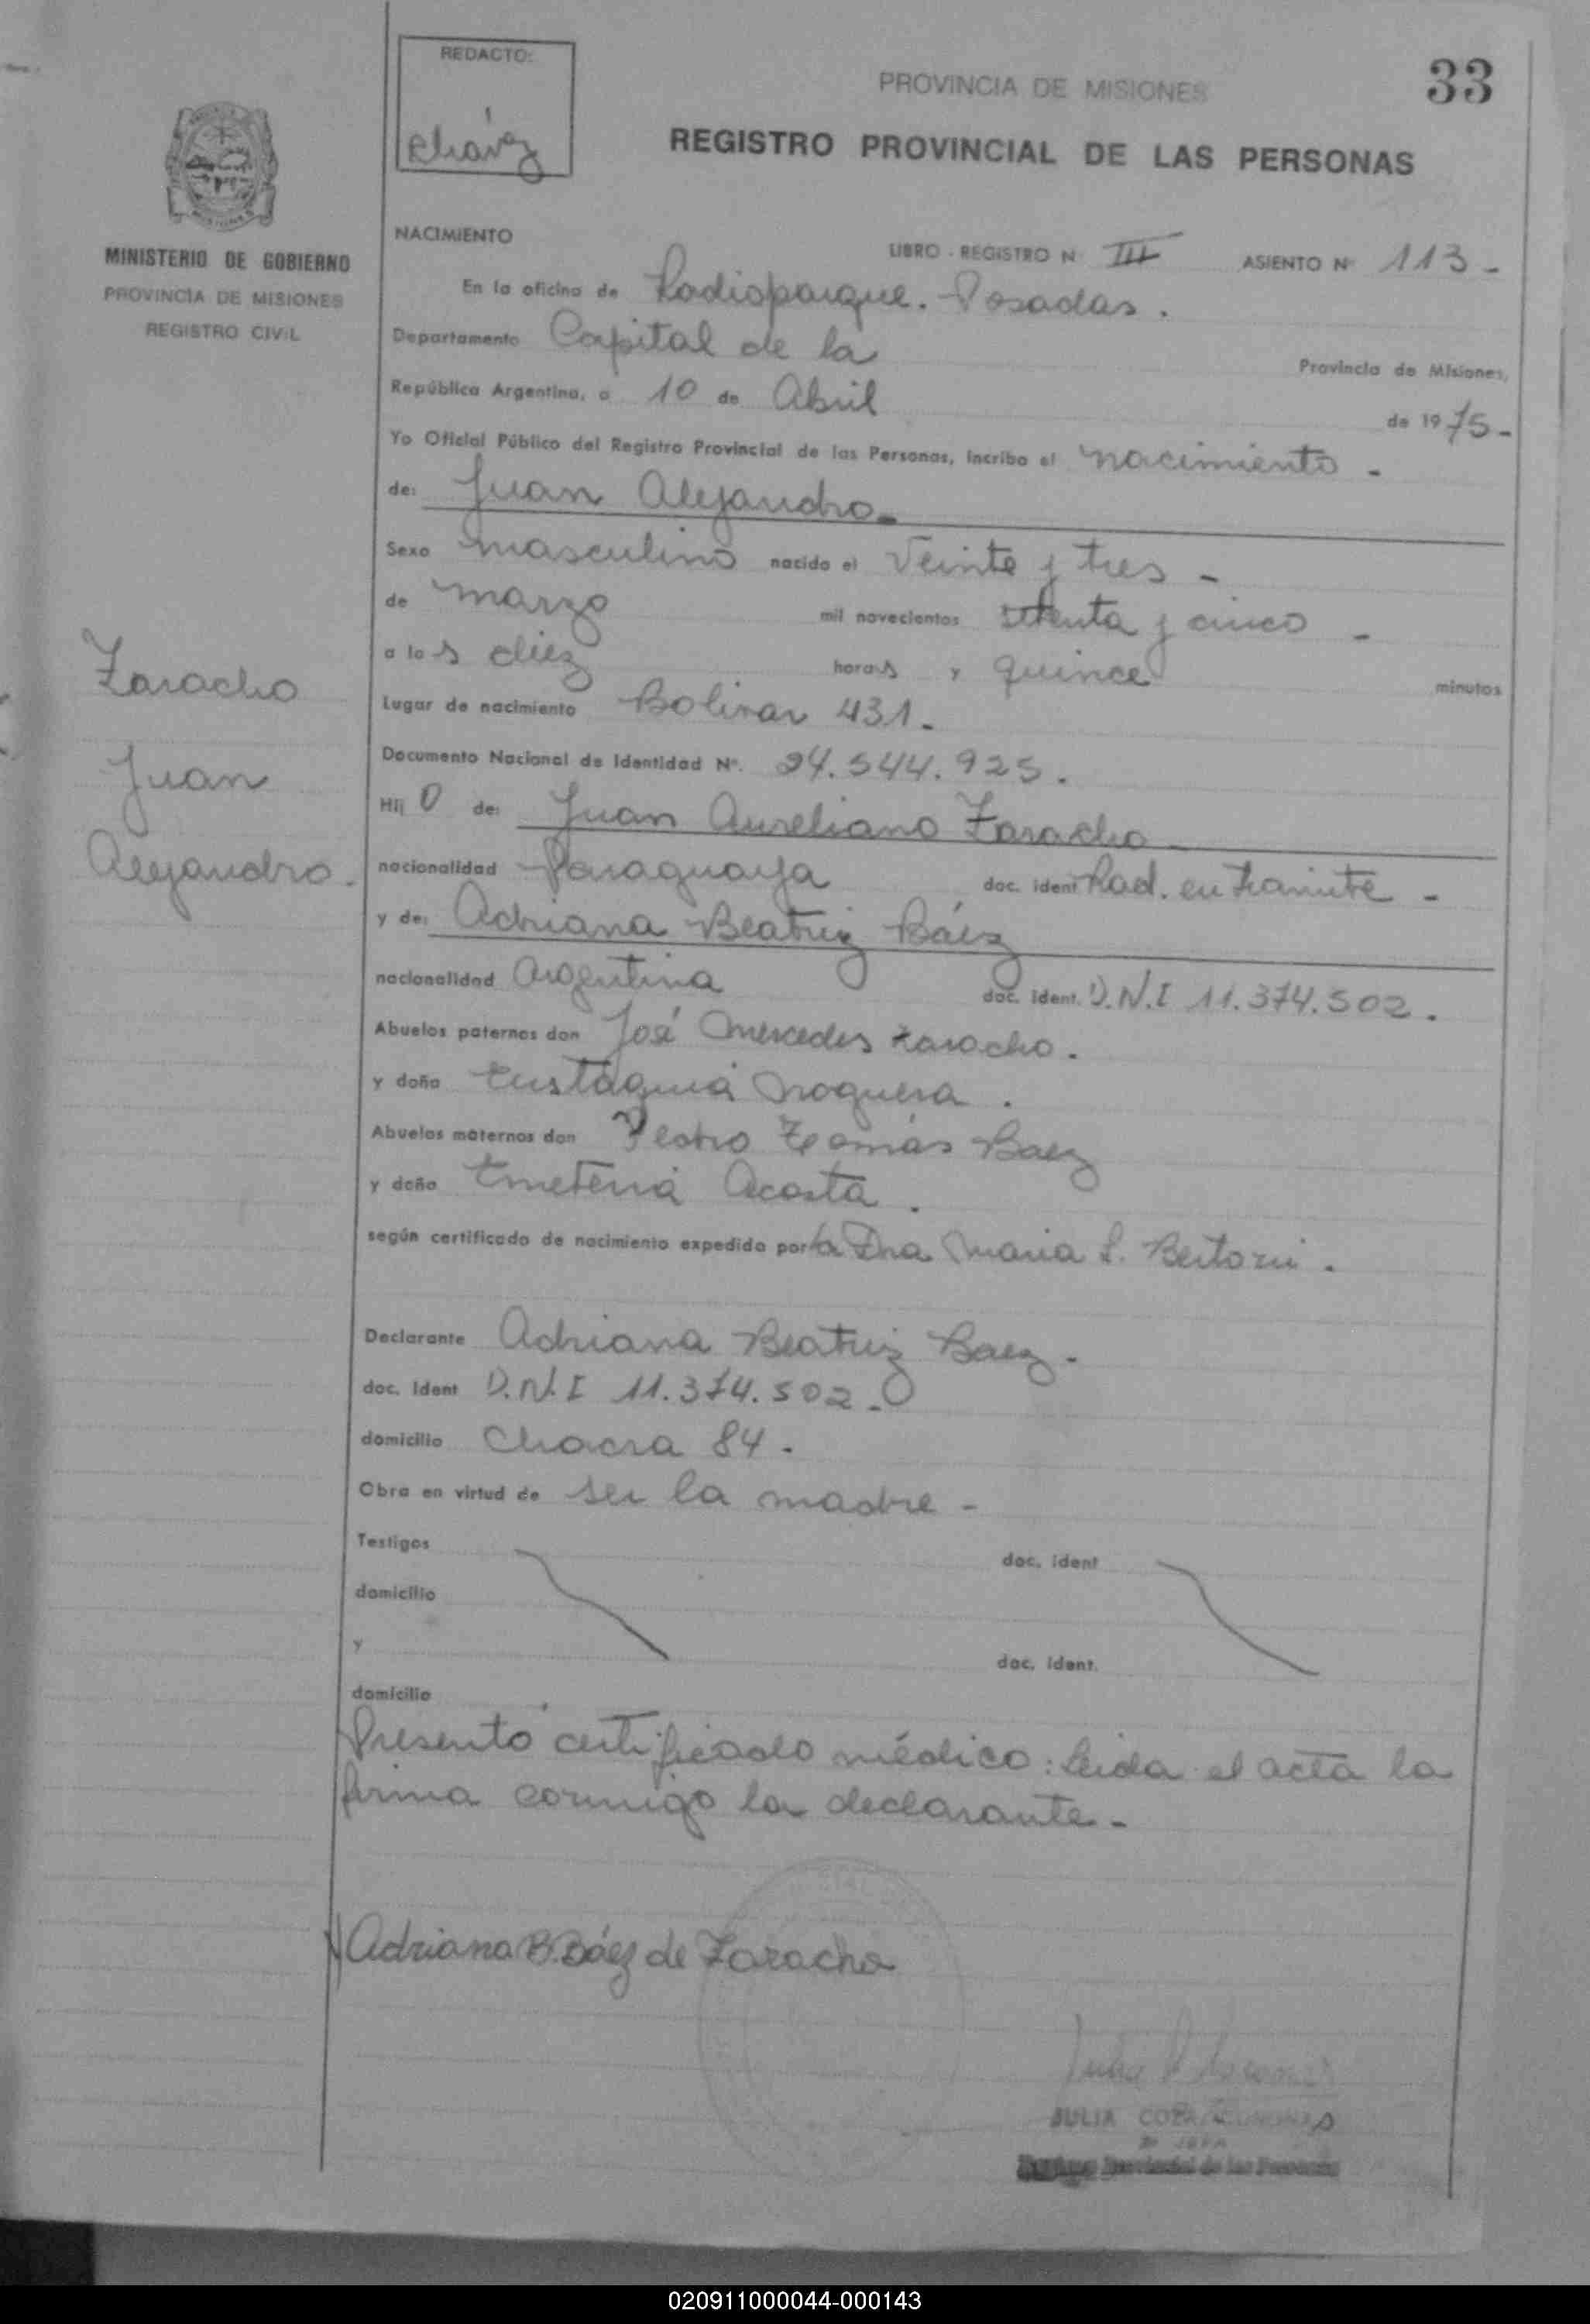 REDACTO:
Chávez
PROVINCIA DE MISIONES
33
REGISTRO PROVINCIAL DE LAS PERSONAS
MINISTERIO DE GOBIERNO
PROVINCIA DE MISIONES
REGISTRO CIVIL
NACIMIENTO
LIBRO - REGISTRO N° III ASIENTO N° 113 -
En la oficina de Radioparque. Posadas.
Departamento Capital de la Provincia de Misiones,
República Argentina, a 10 de Abril de 1975-
Yo Oficial Público del Registro Provincial de las Personas, incribo el nacimiento -
de: Juan Alejandro-
Sexo masculino nacido el Veinte y tres -
de marzo mil novecientos setenta y cinco -
a las diez horas y quince minutos
Zaracho
Juan
Alejandro.
Lugar de nacimiento Bolivar 431.
Documento Nacional de Identidad N°. 24.544.925.
Hij o de: Juan Aureliano Zaracho
nacionalidad Paraguaya doc. ident Rad. en tramite -
y de: Adriana Beatriz Báez
nacionalidad Argentina doc. ident. D.N.I 11.374.502.
Abuelos paternos don José Mercedes Zaracho.
y doña Eustaquia Noguera.
Abuelos maternos don Pedro Tomás Baez
y doña Emeteria Acosta.
según certificado de nacimiento expedido por la Dra Maria L.
Declarante Adriana Beatriz Baez.
doc. Ident D.N.I 11.374.502.
domicilio Chacra 84.
Obra en virtud de ser la madre -
Testigos doc. ident
domicilio
y doc. Ident.
domicilio
Presentó certificado médico: Leida el acta la
firma conmigo la declarante.
Adriana B. Báez de Zaracho
JULIA
Provincial de las Personas
020911000044-000143